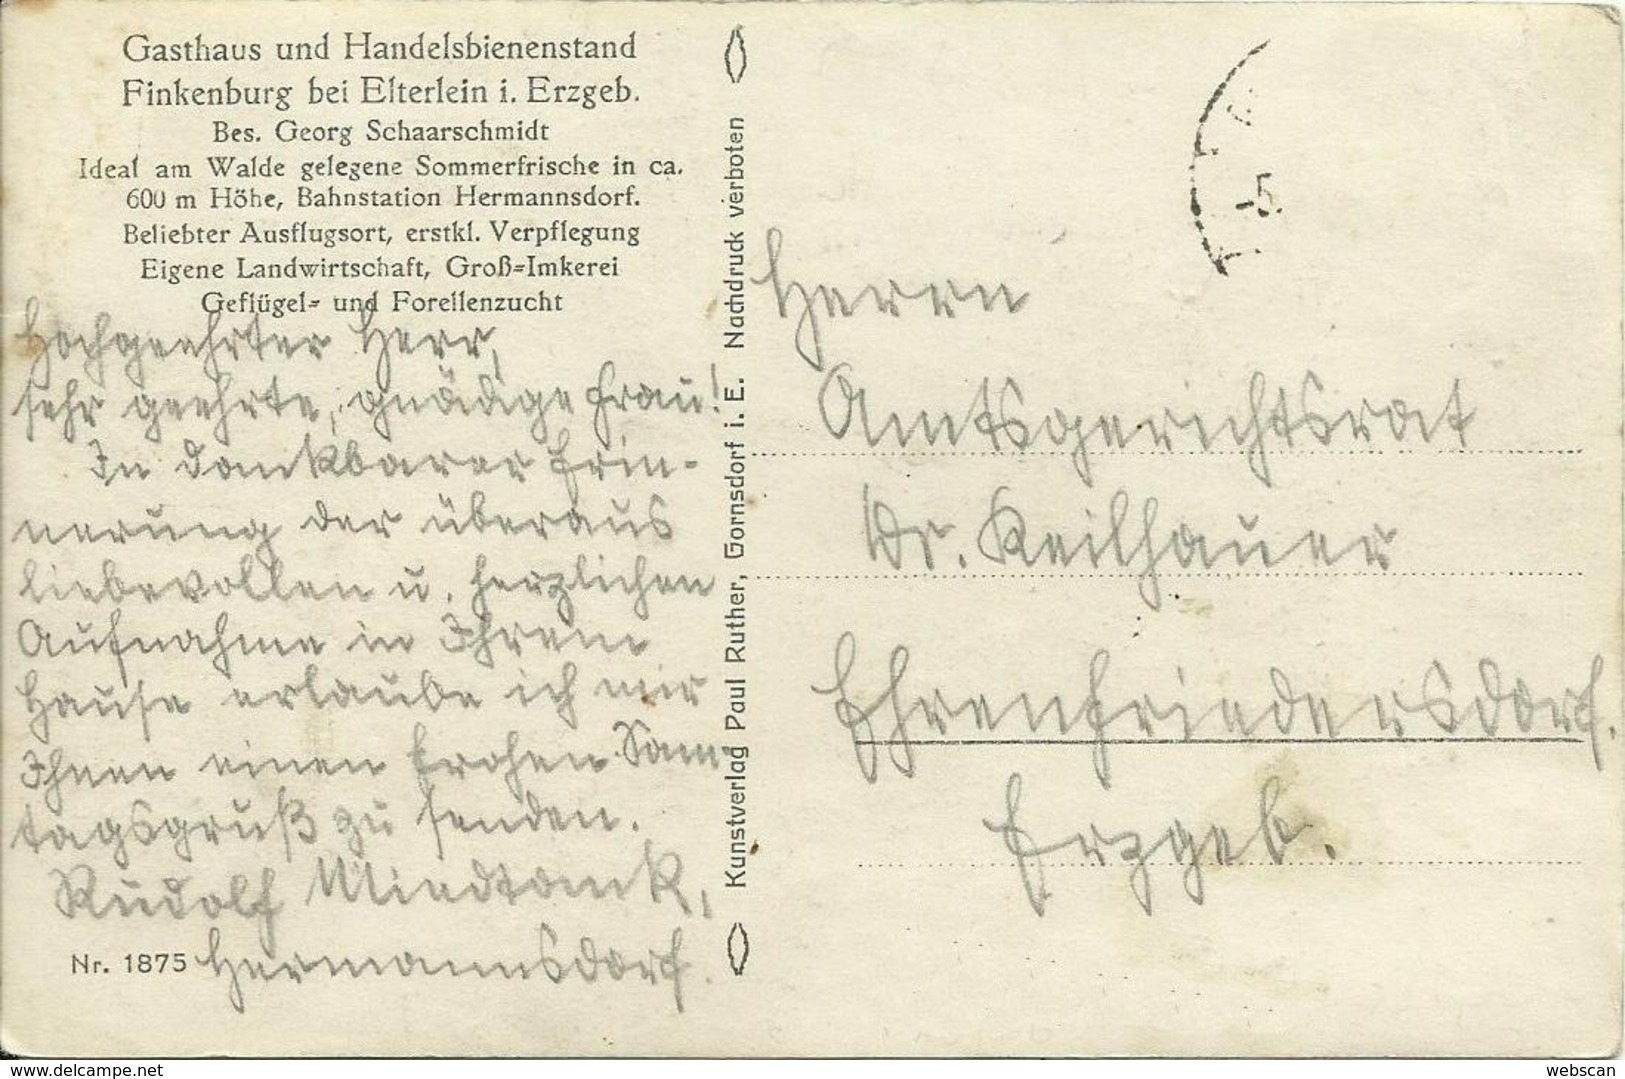 Gasthaus und Handelsbienenstand
Finkenburg bei Elterlein i. Erzgeb.
Bes. Georg Schaarschmidt
Ideal am Walde gelegene Sommerfrische in ca.
600 m Höhe, Bahnstation Hermannsdorf.
Beliebter Ausflugsort, erstkl. Verpflegung
Eigene Landwirtschaft, Groß=Imkerei
Geflügel= und Forellenzucht
Hochgeehrter Herr,
sehr geehrte, gnädige Frau!
In dankbarer Erin-
nerung der überaus
liebevollen u. herzlichen
Aufnahme in Ihrem
Hause erlaube ich mir
Ihnen einen frohen Sam-
tagsgruß zu senden.
Rudolf
Hermannsdorf.
Nr. 1875
Kunstverlag Paul Ruther, Gornsdorf i. E. Nachdruck verboten
-5.
Herrn
Amtsgerichtsrat
Dr. Keilhauer
Ehrenfriedersdorf.
Erzgeb.
www.delcampe.net
webscan